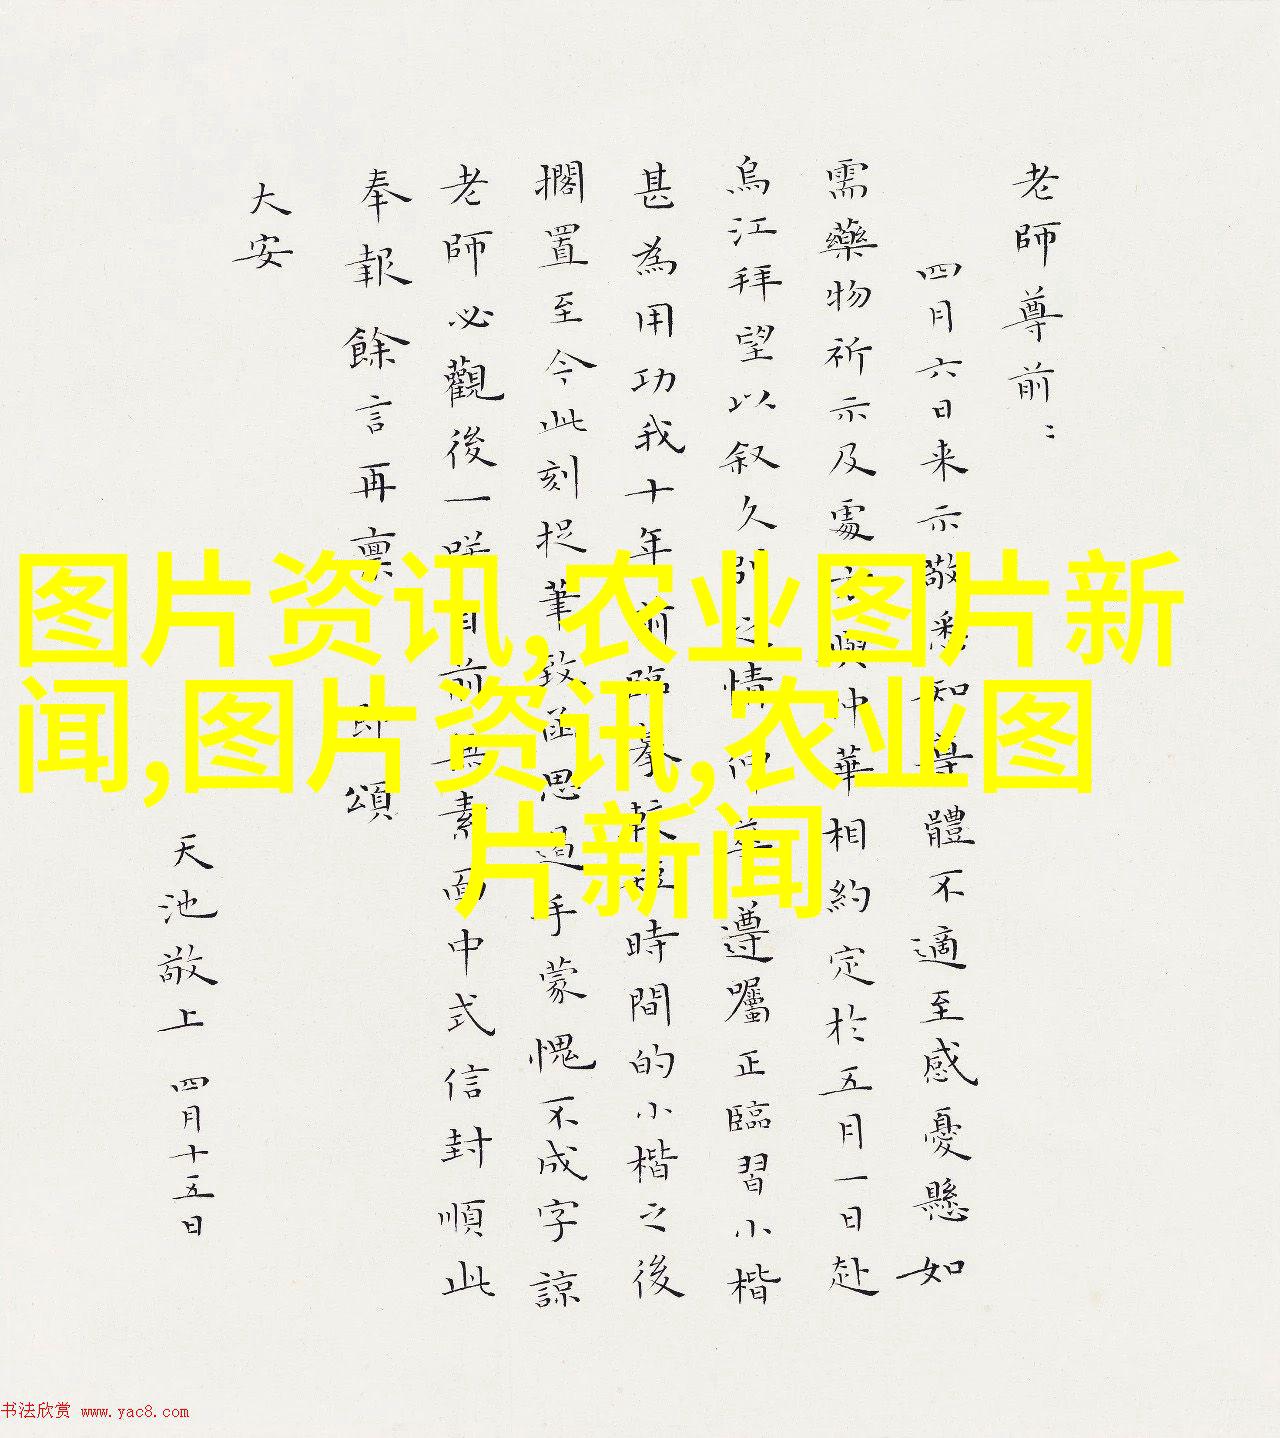 老師尊前：
四月六日来示敬悉知尊體不適至感憂懸如
需藥物祈示及處方與仲華相約定於五月一日赴
烏江拜望以叙久別之情 遵囑正臨習小楷
甚為用功我十年前臨摹 時間的小楷之後
擱置至今此刻捉筆致函思過手蒙愧不成字諒
老師必觀後一咲目前無素面中式信封順此
奉報餘言再禀 即頌
大安
天池敬上 四月十五日
图片资讯,农业图片新
闻,图片资讯,农业图
片新闻
书法欣赏 www.yac8.com